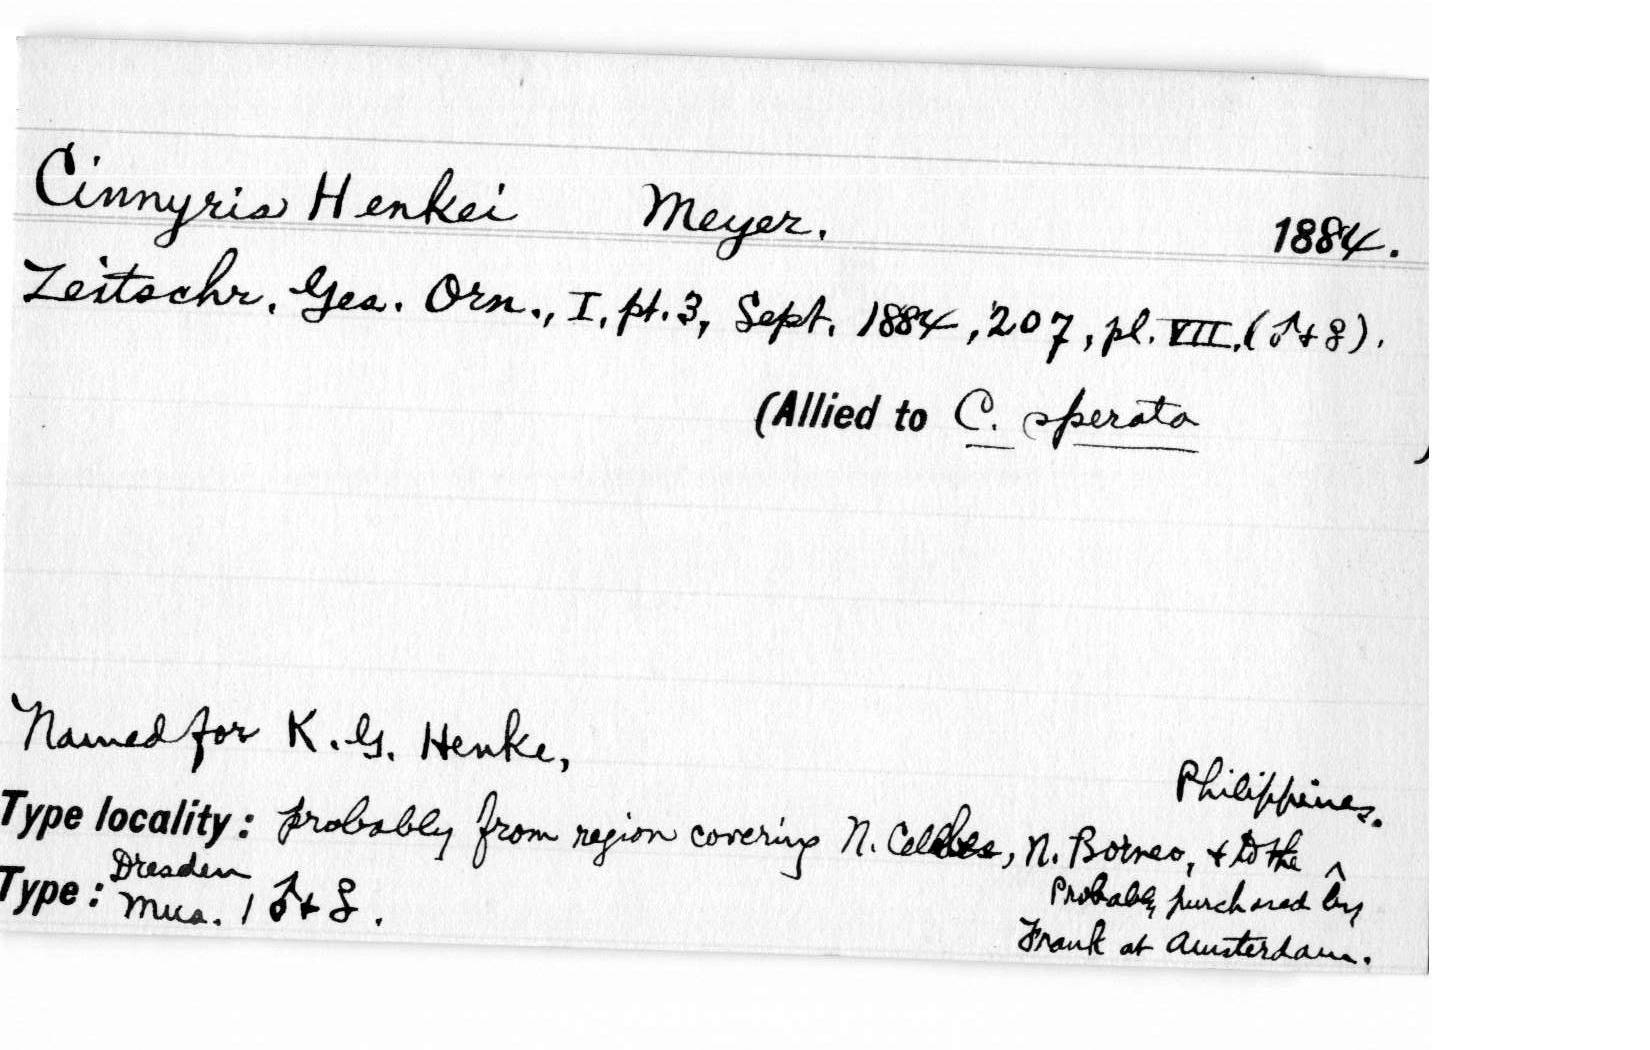 Cinnyris Henkei Meyer. 1884.
Zeitschr. Ges. Orn., I, pt. 3, Sept. 1884, 207, pl. VII, (♂ + ♀).
(Allied to C. sperata )
Named for K. G. Henke,
Philippines.
Type locality: probably from region covering N. Celebes, N. Borneo, + to the ^
Probably purchased by
Type: Dresden Mus. 1 ♂ + ♀.
Frank at Amsterdam.